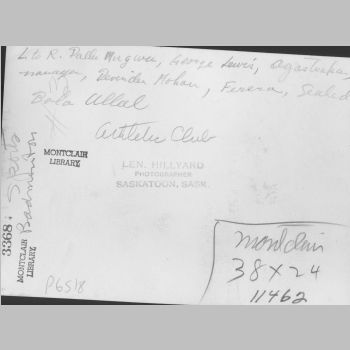 L to R. George Lewis,
manager, Devinder Mohan, Ferera,
Bala Ullal
Athletic Club
MONTCLAIR
LIBRARY
LEN. HILLYARD
PHOTOGRAPHER
SASKATOON, SASK.
3368: Sports
Badminton
MONTCLAIR
LIBRARY
P6518
montclair
38 X 24
11462